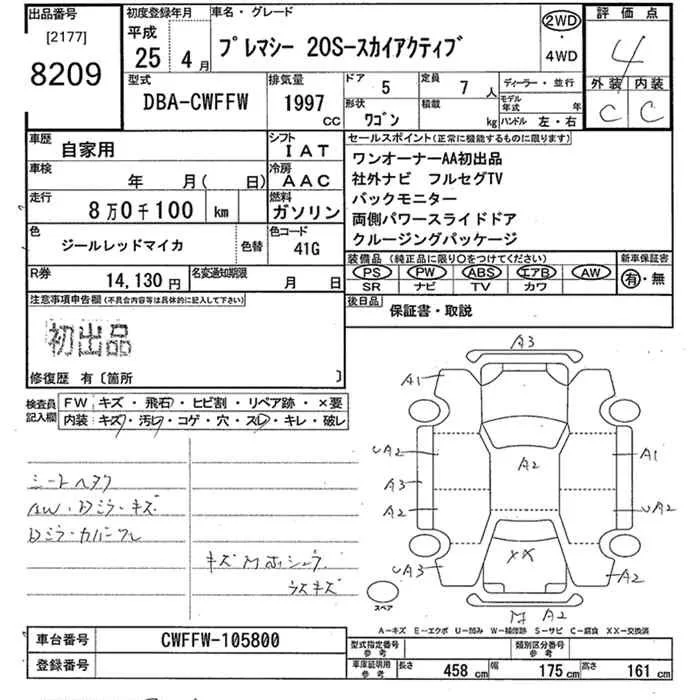 出品番号
[2177]
8209
初度登録年月
平成
25 4月
車名・グレード
プレマシー 20S-スカイアクティブ
2WD
・
4WD
評価点
4
外装 内装
C C
型式
DBA-CWFFW
排気量
1997
CC
ドア 5
定員 7 人
形状
ワゴン
積載
kg
ディーラー・並行
モデル年式 年
ハンドル 左・右
車歴
自家用
シフト
IAT
車検
年 月( 日)
冷房
AAC
走行
8万0千100 km
燃料
ガソリン
色
ジールレッドマイカ
色替
色コード
41G
R券
14,130円
名変通知期限
月 日
セールスポイント(正常に機能するものに限ります)
ワンオーナーAA初出品
社外ナビ フルセグTV
バックモニター
両側パワースライドドア
クルージングパッケージ
装備品(純正品に限り○をつけてください)
PS PW ABS エアB AW
SR ナビ TV カワ
新車保証書
有・無
後日品
保証書・取説
注意事項申告欄(不具合内容等は具体的に記入して下さい)
初出品
修復歴 有〔箇所 〕
検査員記入欄
FW キズ・飛石・ヒビ割・リペア跡・×要
内装 キズ・汚レ・コゲ・穴・スレ・キレ・破レ
シートヘタク
AW・Dミラ・キズ
Dミラ・カバーワレ
キズM
ラスキズ
A3
A1
UA2
A3
A2
UA3
A2
XX
A1
UA2
A2
A2
スペア
A-キズ E-エクボ U-凹み W-補修跡 S-サビ C-腐食 XX-交換済
車台番号
CWFFW-105800
登録番号
型式指定番号
参考
類別区分番号
参考
車庫証明用
参考
長さ 458 cm
幅 175 cm
高さ 161 cm